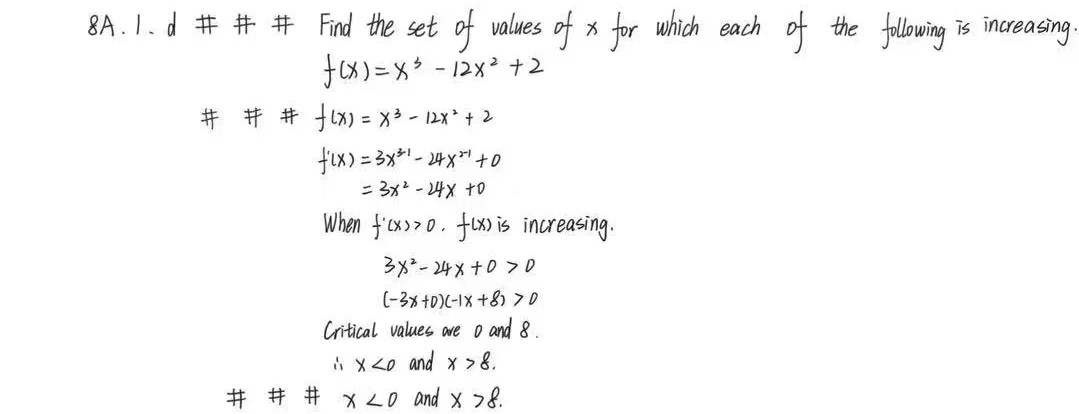 8A.1.d # # # Find the set of values of x for which each of the following is increasing.
f(x) = x³ - 12x² + 2
# # # f(x) = x³ - 12x² + 2
f'(x) = 3x³⁻¹ - 24x²⁻¹ + 0
= 3x² - 24x + 0
When f'(x) > 0. f(x) is increasing.
3x² - 24x + 0 > 0
(-3x+0)(-1x+8) > 0
Critical values are 0 and 8.
∴ x < 0 and x > 8.
# # # x < 0 and x > 8.